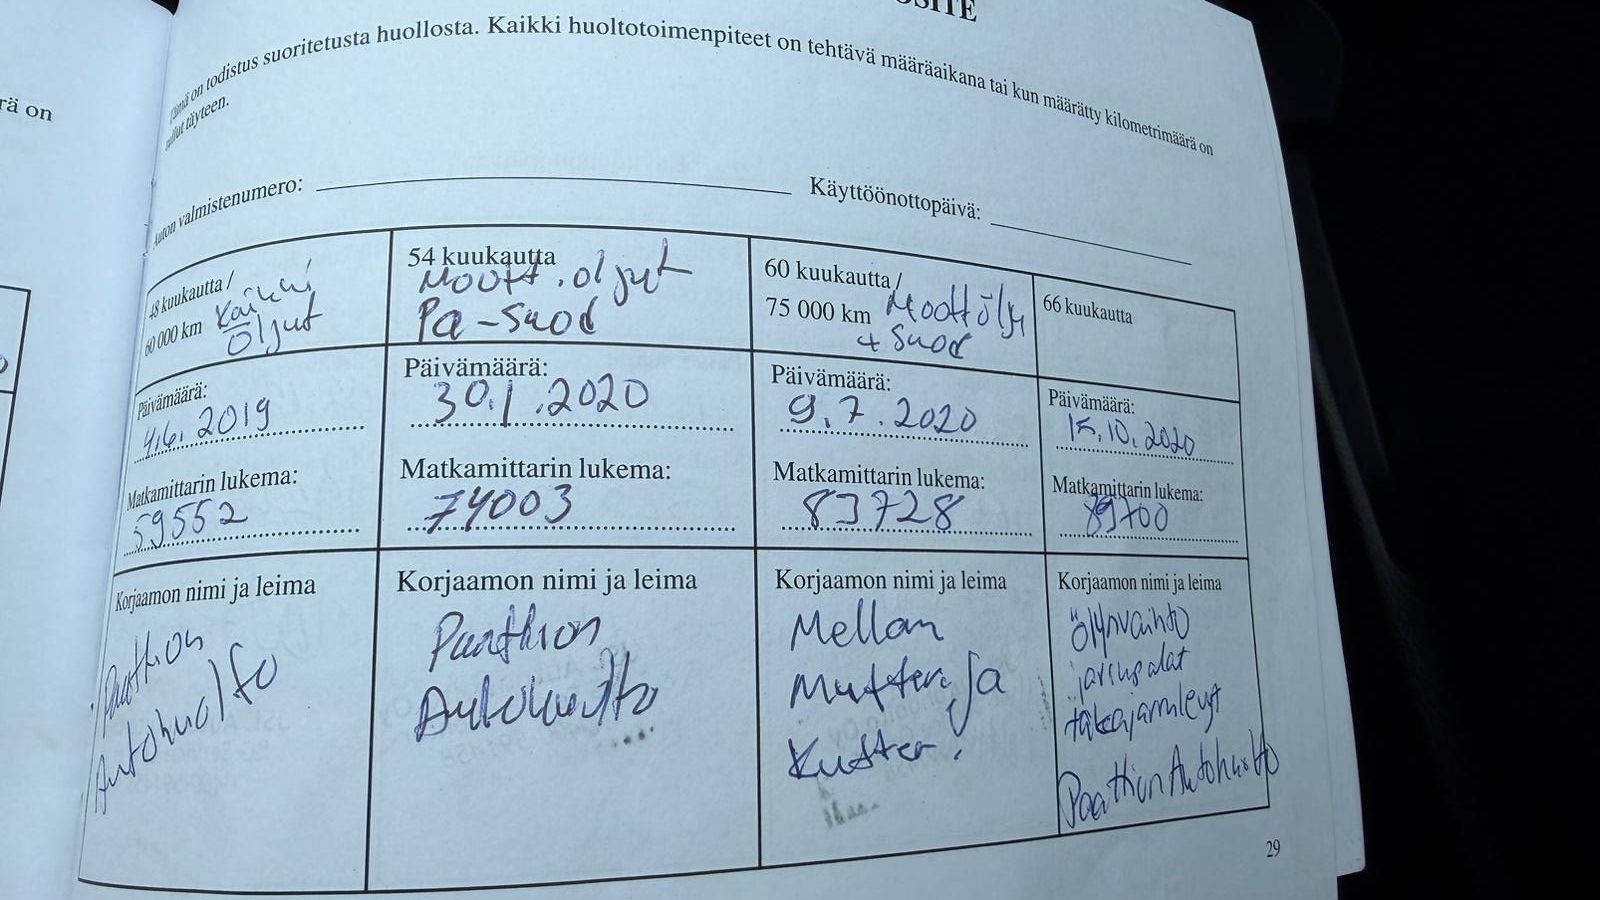 OSITE
Tämä on todistus suoritetusta huollosta. Kaikki huoltotoimenpiteet on tehtävä määräaikana tai kun määrätty kilometrimäärä on
tullut täyteen.
rä on
Auton valmistenumero:
Käyttöönottopäivä:
48 kuukautta /
60 000 km Kaikki
öljyt
Päivämäärä:
4.6. 2019
Matkamittarin lukema:
59552
Korjaamon nimi ja leima
Paattion
Autohuolto
54 kuukautta
Moott.öljyt
Pa-Suod
Päivämäärä:
30.1.2020
Matkamittarin lukema:
74003
Korjaamon nimi ja leima
Paattion
Autohuolto
60 kuukautta /
75 000 km Moottöljy
+ Suod
Päivämäärä:
9.7.2020
Matkamittarin lukema:
83728
Korjaamon nimi ja leima
Mellan
Mutteri ja
66 kuukautta
Päivämäärä:
15.10.2020
Matkamittarin lukema:
89700
Korjaamon nimi ja leima
Öljynvaihto
jarrupalat
takajarrulevyt
Paattion Autohuolto
29